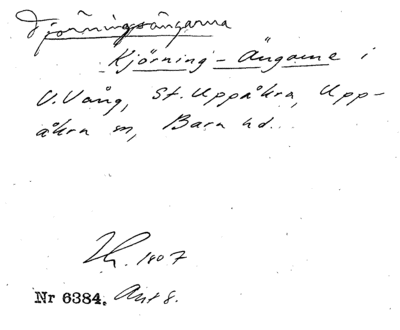 Tjörningsängarna
"Kjörning-Ängarne i
V.Vång, St. Uppåkra, Upp-
åkra sn, Bara hd...
1807
Nr 6384. Ant 8.